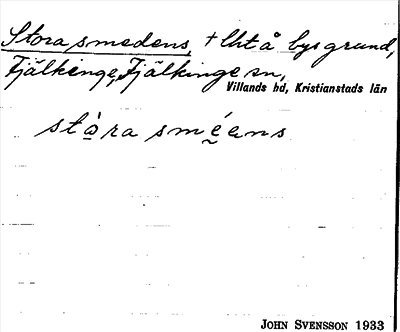 Stora smedens, + lht å bys grund,
Fjälkinge, Fjälkinge sn,
Villands hd, Kristianstads län
stòra sméens
JOHN SVENSSON 1933